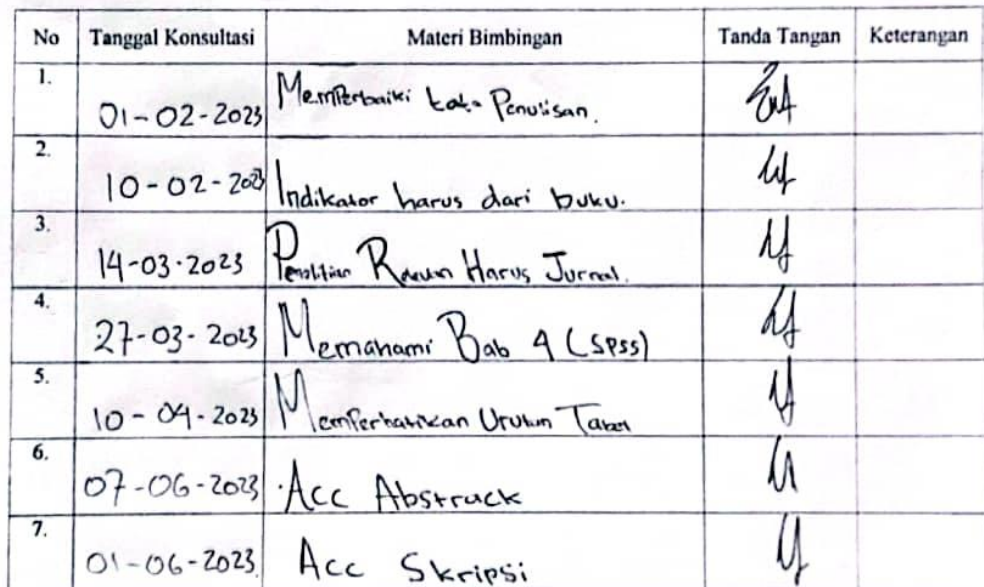 No Tanggal Konsultasi Materi Bimbingan Tanda Tangan Keterangan
1. 01-02-2023 Memperbaiki tata Penulisan.
2. 10-02-2023 Indikator harus dari buku.
3. 14-03-2023 Penelitian Relevan Harus Jurnal.
4. 27-03-2023 Memahami Bab 4 (SPSS)
5. 10-04-2023 Memperhatikan Urutan Tabel
6. 07-06-2023 Acc Abstrack
7. 01-06-2023 Acc Skripsi